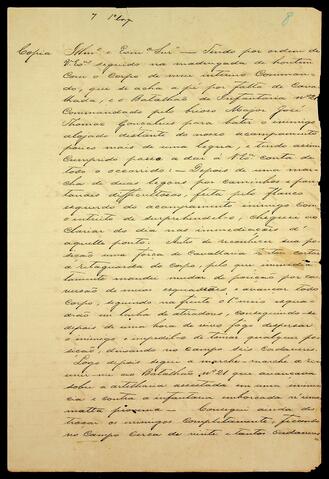 7 1º Corp
8
Copia Illmº e Exmº Snr — Tendo por ordem de
V. Exª seguido na madrugada de hontem
com o Corpo de meu interino Comman-
do, que se acha a pé por falta de Cava-
lhada, e o Batalhão de Infantaria nº 21
Commandado pelo bravo Major José
Thomaz Gonçalves para bater o inimigo
alojado distante do nosso acampamento
pouco mais de uma legua, e tendo assim
cumprido passo a dar á V. Exª conta de
todo o occorrido: — Depois de uma mar-
cha de duas legoas por caminhos e pan-
tanaes difficultosos, feita pelo flanco
esquerdo do acampamento inimigo com
o intuito de surprehendel-o, cheguei ao
clariar do dia nas immediações d'
aquelle ponto. Antes de reconhecer sua po-
sição uma força de Cavallaria tentou cortar
a retaguarda do Corpo, pelo que immedia-
tamente mandei mudar de posição por con-
versão de meios esquadrões e avançar todo
Corpo, seguindo na frente o 1º meio esqua-
drão em linha de atiradores, conseguindo-se
depois de uma hora de vivo fogo dispersar
o inimigo e impedil-o de tomar qualquer po-
sição, deixando no Campo seis cadaveres.
Logo depois segui a marche-marche a re-
unir-me ao Batalhão Nº 21 que avançava
sobre a artilharia assestada em uma eminen-
cia e contra a infantaria emboscada n'uma
matta proxima — Consegui ainda des-
troçar os inimigos completamente, ficando
no Campo cerca de vinte e tantos cadaveres